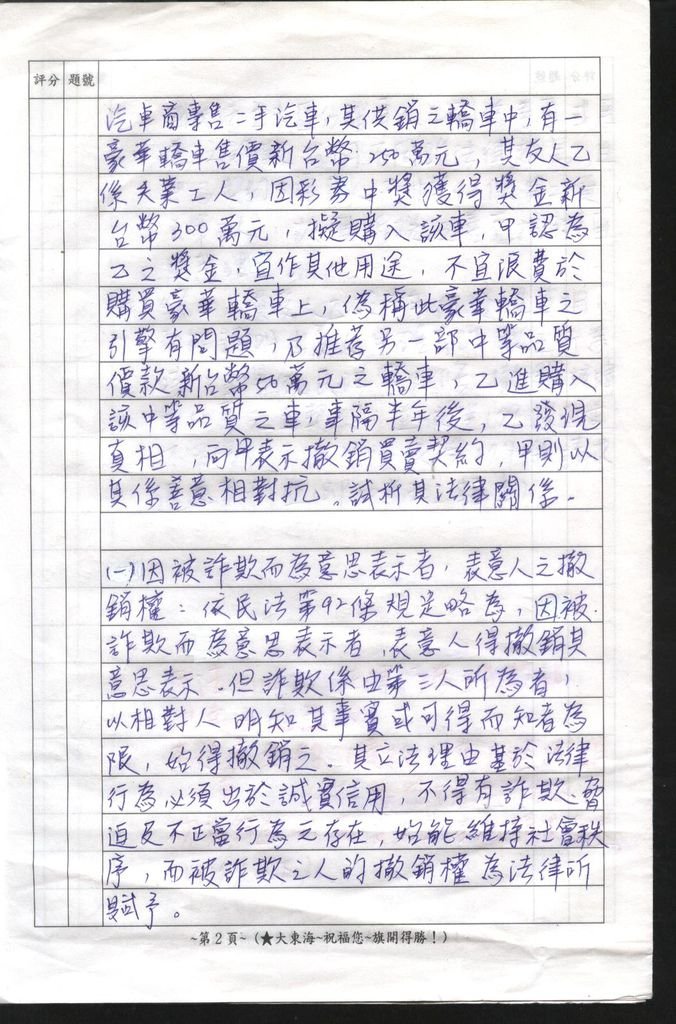 評分 題號
汽車商專售二手汽車,其供銷之轎車中,有一
豪華轎車售價新台幣250萬元,其友人乙
係失業工人,因彩券中獎獲得獎金新
台幣300萬元,擬購入該車,甲認為
乙之獎金,宜作其他用途,不宜浪費於
購買豪華轎車上,偽稱此豪華轎車之
引擎有問題,乃推荐另一部中等品質
價款新台幣50萬元之轎車,乙進購入
該中等品質之車,事隔半年後,乙發現
真相,向甲表示撤銷買賣契約,甲則以
其係善意相對抗。試析其法律關係。
(一)因被詐欺而為意思表示者,表意人之撤
銷權:依民法第92條規定略為,因被
詐欺而為意思表示者,表意人得撤銷其
意思表示。但詐欺係由第三人所為者,
以相對人明知其事實或可得而知者為
限,始得撤銷之。其立法理由基於法律
行為必須出於誠實信用,不得有詐欺、脅
迫及不正當行為之存在,始能維持社會秩
序,而被詐欺之人的撤銷權為法律所
賦予。
~第2頁~(★大東海~祝福您~旗開得勝!)